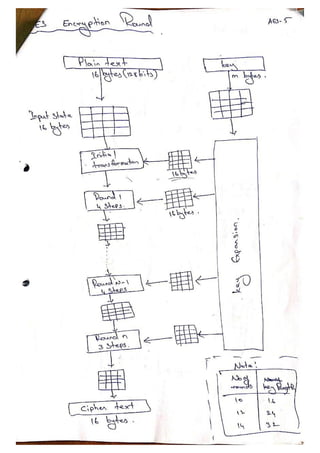 Encryption Round
AES-5
Plain text
16 bytes (128 bits)
key
m bytes.
Input state
16 bytes
Initial
transformation
16 bytes
Round 1
4 steps.
16 bytes.
Key Expansion.
Round N-1
4 steps
Round n
3 steps.
Cipher text
16 bytes.
Note:
No of
rounds
key
10 16
12 24
14 32